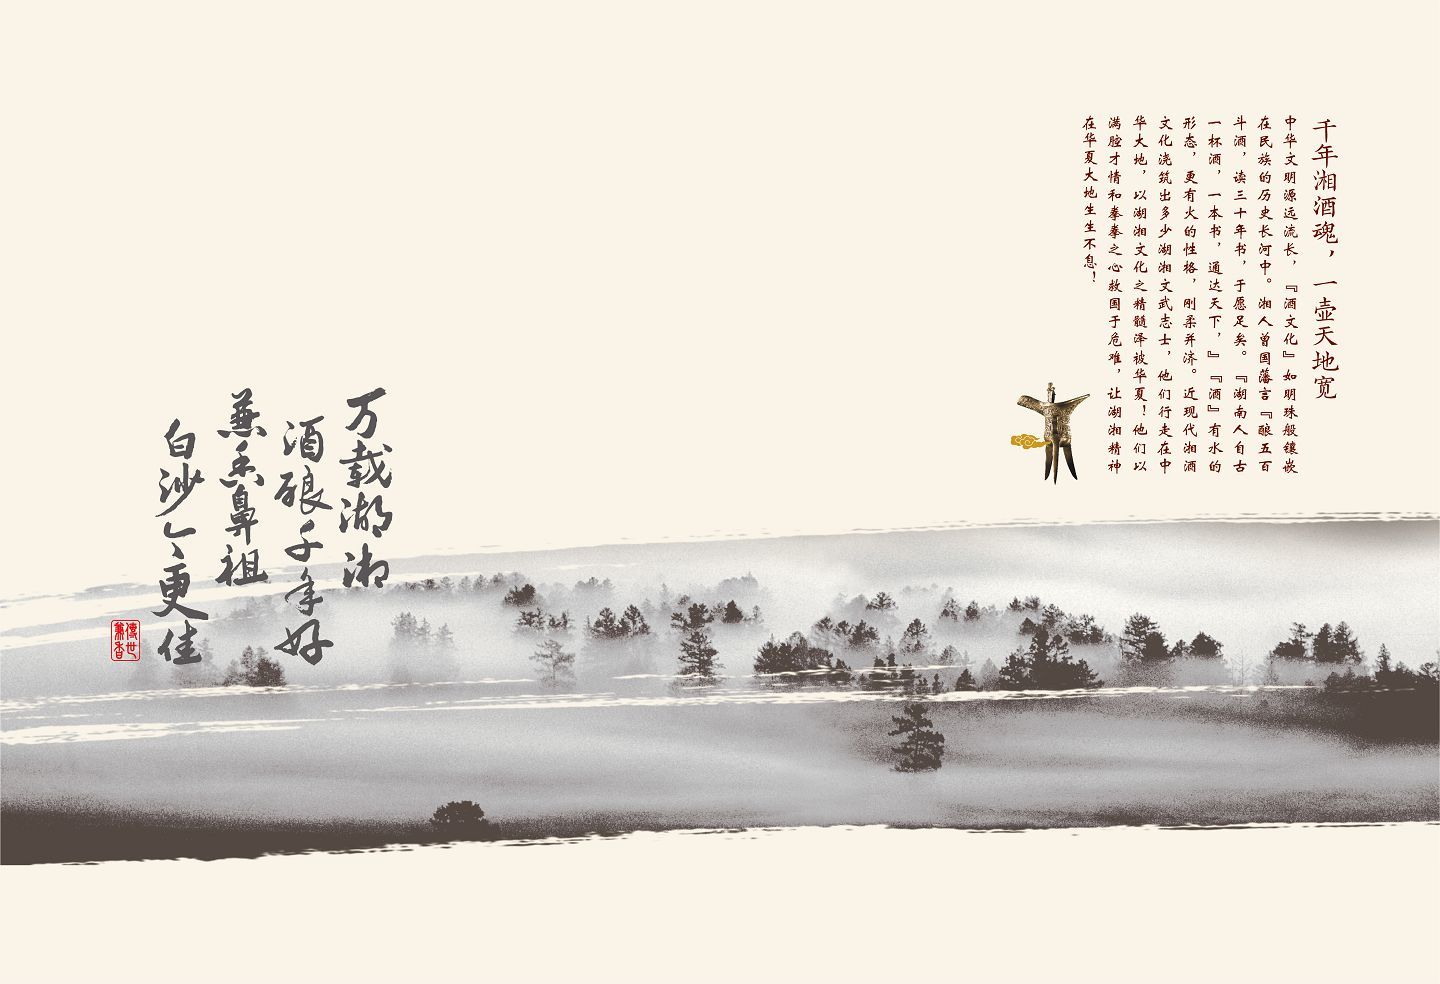 千年湘酒魂，一壶天地宽
中华文明源远流长，『酒文化』如明珠般镶嵌
在民族的历史长河中。湘人曾国藩言『酿五百
斗酒，读三十年书，于愿足矣。『湖南人自古
一杯酒，一本书，通达天下，』『酒』有水的
形态，更有火的性格，刚柔并济。近现代湘酒
文化浇筑出多少湖湘文武志士，他们行走在中
华大地，以湖湘文化之精髓泽被华夏！他们以
满腔才情和拳拳之心救国于危难，让湖湘精神
在华夏大地生生不息！
万载湖湘
酒酿千年好
兼香鼻祖
白沙今更佳
传世
兼香